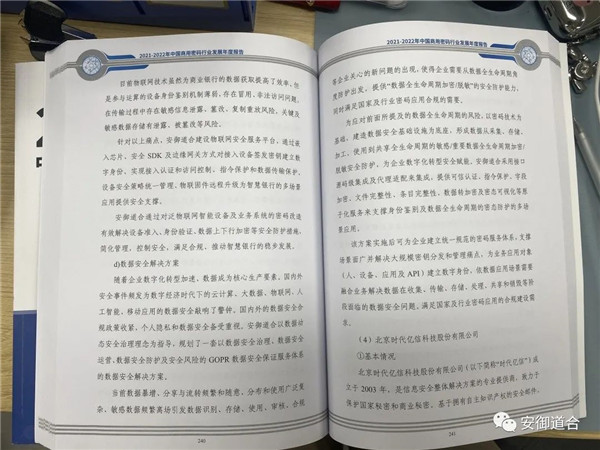 2021-2022年中国商用密码行业发展年度报告
目前物联网技术虽然为商业银行的数据获取提高了效率，但
是参与运算的设备身份鉴别机制薄弱，存在冒用、非法访问问题，
在传输过程中存在敏感信息泄露、篡改、复制重放风险，关键及
敏感数据存储有泄露、被篡改等风险。
针对以上痛点，安御道合建设物联网安全服务平台，通过嵌
入芯片、安全 SDK 及边缘网关方式对接入设备签发密钥建立数
字身份，实现接入认证和访问控制、指令保护和数据传输保护、
设备安全策略统一管理、物联固件远程升级为智慧银行的多场景
应用提供安全支撑。
安御道合通过对泛物联网智能设备及业务系统的密码改造
有效解决设备准入、身份验证、数据上下行加密等安全防护措施，
简化管理、控制安全、满足合规、推动智慧银行的稳步发展。
d)数据安全解决方案
随着企业数字化转型加速，数据成为核心生产要素。国内外
安全事件频发为数字经济时代下的云计算、大数据、物联网、人
工智能，移动应用的数据安全敲响了警钟。国内外的数据安全合
规政策收紧，个人隐私和数据安全备受重视。安御道合以数据动
态安全治理理念为指导，规划了一套以数据安全治理、数据安全
运营、数据安全防护及安全风险的 GOPR 数据安全保证服务体系
的数据安全解决方案。
当前数据暴增、分享与流转频繁和随意、分布和使用广泛复
杂、敏感数据频繁离场引发数据识别、存储、使用、审核、合规
240
2021-2022年中国商用密码行业发展年度报告
等企业关心的新问题的出现，使得企业需要从数据全生命周期角
度防护出发，提供“数据全生命周期加密/脱敏”的安全防护能力，
同时满足国家及行业密码应用合规的需要。
为应对前面所提及的数据全生命周期的风险，以密码技术为
基础，建造数据安全基础设施为底座，形成数据从采集、存储、
加工、使用到共享全生命周期的敏感/重要数据全生命周期加密/
脱敏安全防护，为企业数字化转型安全赋能。安御道合采用接口
源码级集成及代理适配来集成，提供可信认证、指令保护、字段
加密、文件完整性、条目完整性、数据转加密及密态可视化等原
子化服务来支撑身份鉴别及数据全生命周期的密态防护的多场
景应用。
该方案实施后可为企业建立统一规范的密码服务体系，支撑
场景面广并解决大规模密钥分发和管理痛点，为业务应用对象
（人、设备、应用及 API）建立数字身份，依数据应用场景需要
融合业务解决数据在收集、传输、存储、处理、共享和销毁等阶
段面临的数据安全问题，满足国家及行业密码应用的合规建设需
求。
（4）北京时代亿信科技股份有限公司
①基本情况
北京时代亿信科技股份有限公司（以下简称“时代亿信”）成
立于 2003 年，是信息安全整体解决方案的专业提供商，致力于
保护国家秘密和商业秘密。基于拥有自主知识产权的安全邮件、
241
安御道合